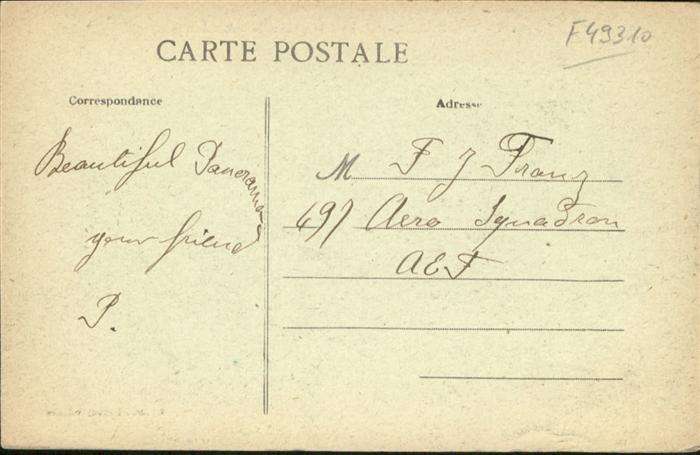 F49310
CARTE POSTALE
Correspondance
Adresse
Beautiful Panorama
your friend
P.
M F J Franz
497 Aero Squadron
AEF